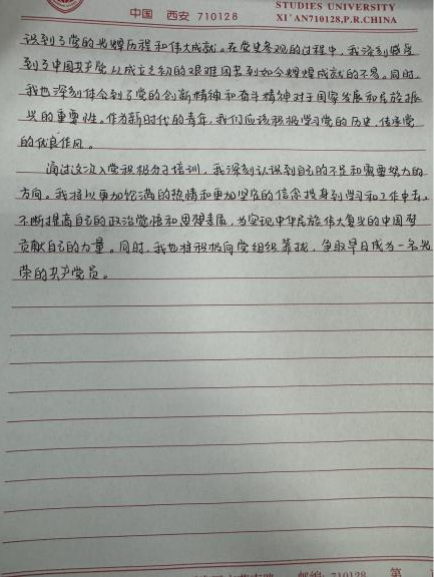 STUDIES UNIVERSITY
中国 西安 710128 XI'AN710128,P.R.CHINA
识到了党的光辉历程和伟大成就。在党史参观的过程中，我深刻感受
到了中国共产党从成立之初的艰难困苦到如今辉煌成就的不易。同时，
我也深刻体会到了党的创新精神和奋斗精神对于国家发展和民族振
兴的重要性。作为新时代的青年，我们应该积极学习党的历史，传承党
的优良作风。
通过这次入党积极分子培训，我深刻认识到自己的不足和需要努力的
方向。我将以更加饱满的热情和更加坚定的信念投身到学习和工作中去，
不断提高自己的政治觉悟和思想素质，为实现中华民族伟大复兴的中国梦
贡献自己的力量。同时，我也将积极向党组织靠拢，争取早日成为一名光
荣的共产党员。
邮编: 710128 第